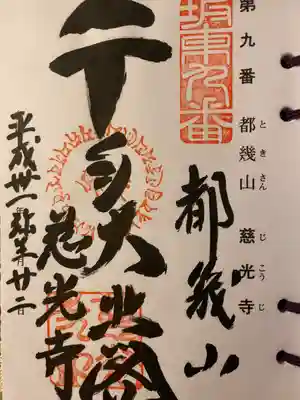 第九番 都幾山 慈光寺
とき さん じ こう じ
坂東九番
都幾山
千手大悲閣
慈光寺
平成廿一年